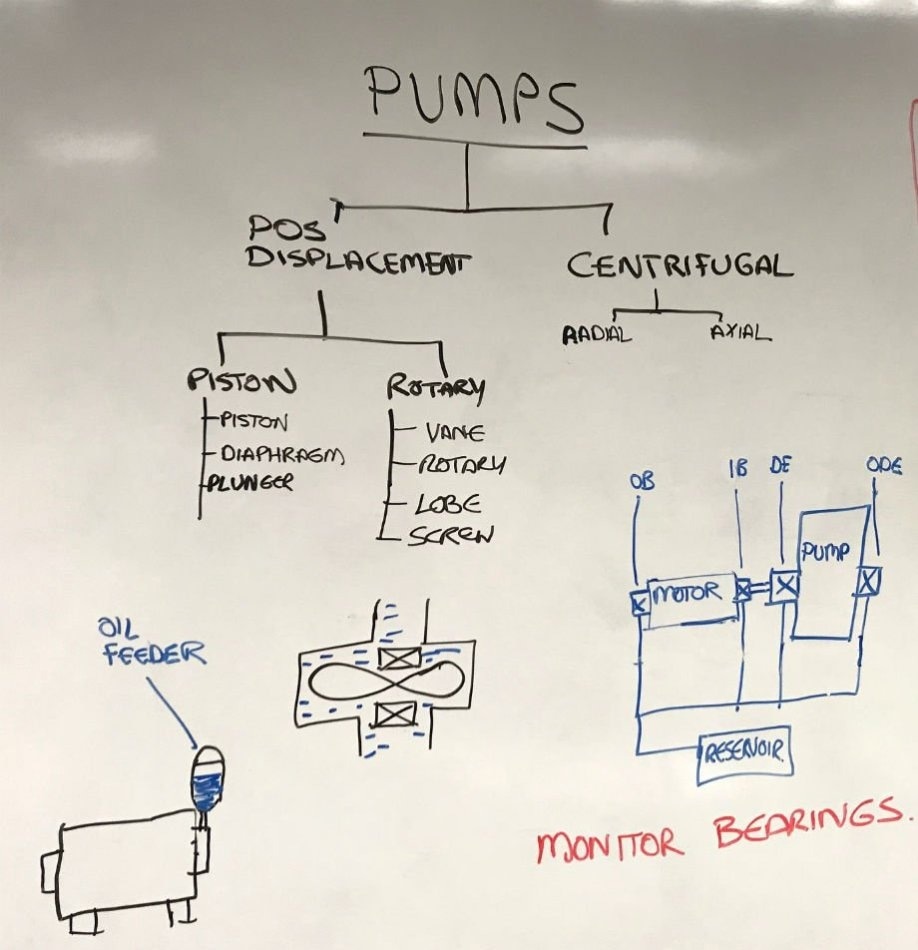 PUMPS
POS
DISPLACEMENT
CENTRIFUGAL
RADIAL
AXIAL
PISTON
PISTON
DIAPHRAGM
PLUNGER
ROTARY
VANE
ROTARY
LOBE
SCREW
OB
IB
DE
ODE
PUMP
MOTOR
RESERVOIR
OIL
FEEDER
MONITOR BEARINGS.